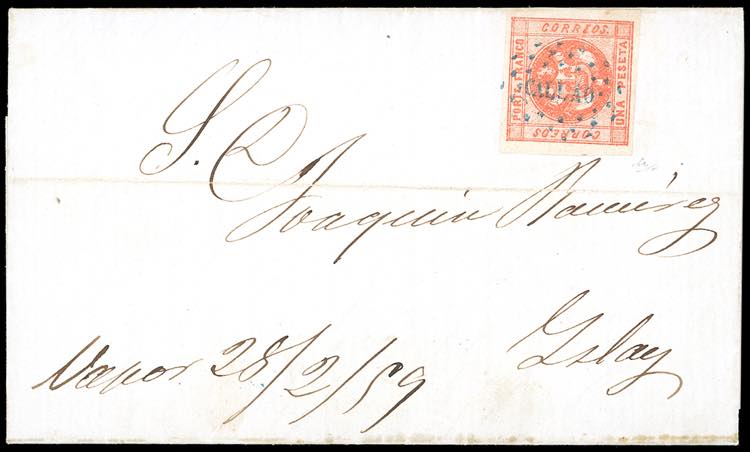 CORREOS.
PORTE FRANCO
UNA PESETA
CALLAO
CORREOS
S. D.
Joaquin Ramirez
Islay
Vapor 28/2/59